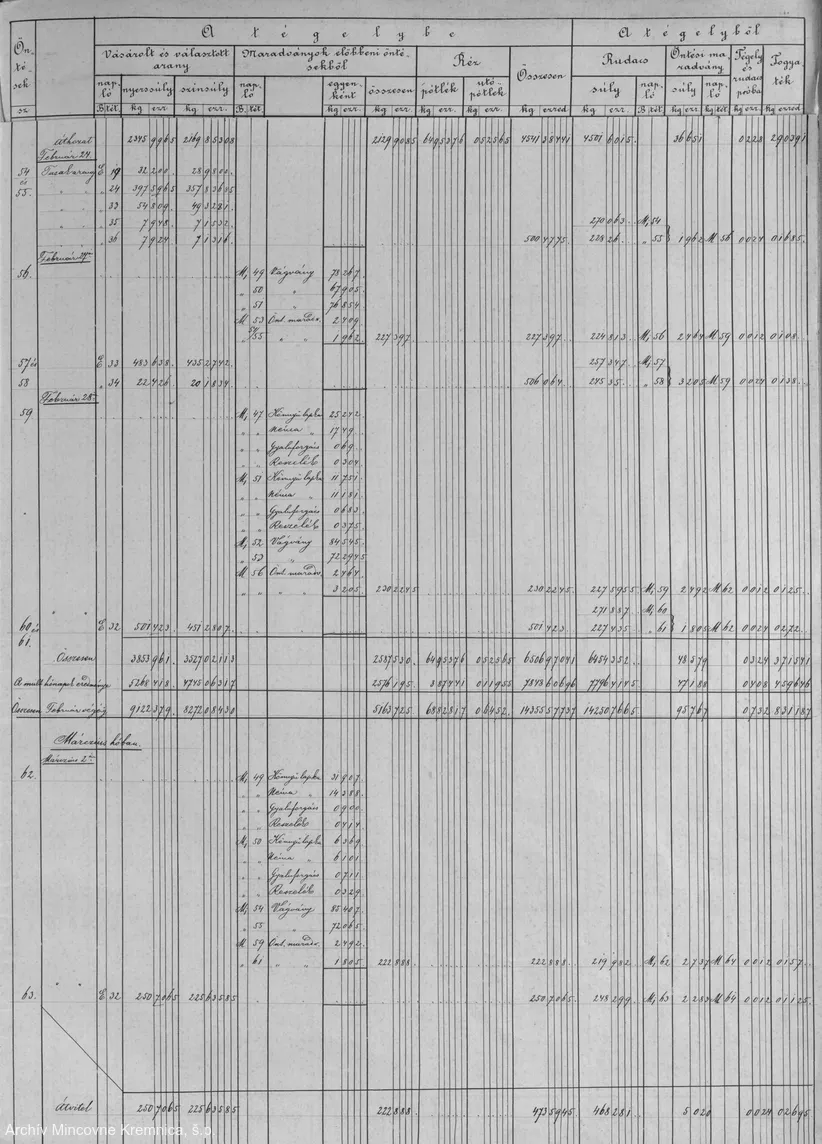 A tégelybe A tégelyből
Ön-tések sz Vásárolt és választott arany Maradványok előbbeni öntésekből Réz Összesen Rudais Öntési maradvány Tégely és rudais próba Fogyaték
napló nyerssúly színsúly napló egyenként összesen pótlék utópótlék súly napló súly napló
B. tét. kg ezr. kg ezr. B. tét. kg ezr. kg ezr. kg ezr. kg ezr. kg ezr. kg ezr. B. tét. kg ezr. kg tét. kg ezr. kg ezred.
áthozat 2345 9965 2169 85308 2129 9085 6495376 052565 4541 38441 4501 6015 36651 0228 290391
Február 24.
54 Tusakarany E 19 32200 289800
és 55. " " 24 3975965 3578 3685
" " 33 54809 493281
" 35 7948 71532 270063 M, 54
" 36 7924 71316 5004775 22826 " 55 1962 M 56 0024 01685
Február 27.
56. M, 49 Vágvány 78267
" 50 " 67905
" 51 " 76854
M 53 Önt. maradv. 2409
" 55 " " 1962 227397 227397 224813 M, 56 2464 M 59 0012 0108
57 és E 33 483638 4352742 257347 M, 57
58 " 34 22426 201834 506064 24535 " 58 3205 M 59 0024 0138
Február 28.
59 M, 47 Könnyű lapka 25242
" " Néma " 1749
" " Gyaluforgás 069
" " Reszelék 0304
M, 51 Könnyű lapka 11751
" " Néma " 11181
" " Gyaluforgás 0683
" " Reszelék 0375
M, 52 Vágvány 84545
" 53 " 722945
M 56 Önt. maradv. 2464
" " " 3205 2302245 2302245 2275955 M, 59 2492 M 62 0012 0125
" " 271887 M, 60
60 és E 32 501423 4512807 501423 227435 " 61 1805 M 62 0024 0272
61.
Összesen 3853961 352702113 2587530 6495376 052565 650697041 6454352 48579 0324 371541
A mult hónapok eredménye 5268418 474506317 2576195 387441 011955 784860696 77964145 47188 0408 459646
Összesen Február végéig 9122379 827208430 5163725 6882817 06452 1435557737 142507665 95767 0732 831187
Márczius hóban.
Márczius 2.
62. M, 49 Könnyű lapka 31907
" " Néma " 14388
" " Gyaluforgás 0900
" " Reszelék 0414
M, 50 Könnyű lapka 6369
" " Néma " 6101
" " Gyaluforgás 0711
" " Reszelék 0329
M, 54 Vágvány 85407
" 55 " 72065
M 59 Önt. maradv. 2492
" 61 " " 1805 222888 222888 219982 M, 62 2737 M 64 0012 0157
" "
63. E 32 2507065 22563585 2507065 248299 M, 63 2283 M 64 0012 01125
Átvitel 2507065 22563585 222888 4735945 468281 5020 0024 02695
Archív Mincovne Kremnica, š.p.